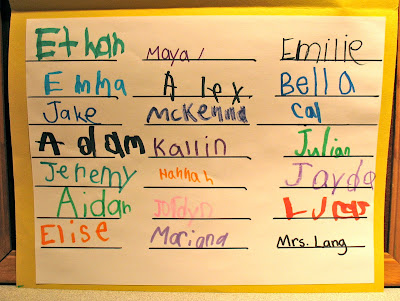 Ethan Maya Emilie
Emma Alex Bella
Jake McKenna Cal
Adam Kallin Julian
Jeremy Hannah Jayda
Aidan Jordyn Lucas
Elise Mariana Mrs. Lang